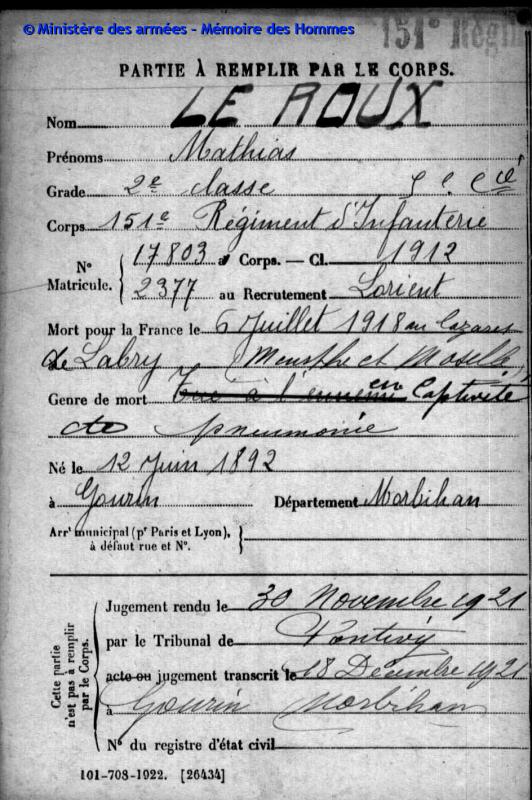 © Ministère des armées - Mémoire des Hommes
151e Régim
PARTIE À REMPLIR PAR LE CORPS.
Nom LE ROUX
Prénoms Mathias
Grade 2e classe
Corps 151e Régiment d'Infanterie
No Matricule. { 17803 au Corps. — Cl. 1912
2377 au Recrutement Lorient
Mort pour la France le 6 Juillet 1918 au Lazaret
de Labry (Meurthe et Moselle)
Genre de mort Tué à l'ennemi en Captivité
de pneumonie
Né le 12 Juin 1892
à Gourin Département Morbihan
Arrt municipal (pr Paris et Lyon),
à défaut rue et No.
Cette partie n'est pas à remplir par le Corps.
Jugement rendu le 30 Novembre 1921
par le Tribunal de Pontivy
acte ou jugement transcrit le 18 Décembre 1921
à Gourin Morbihan
No du registre d'état civil
101-708-1922. [26434]